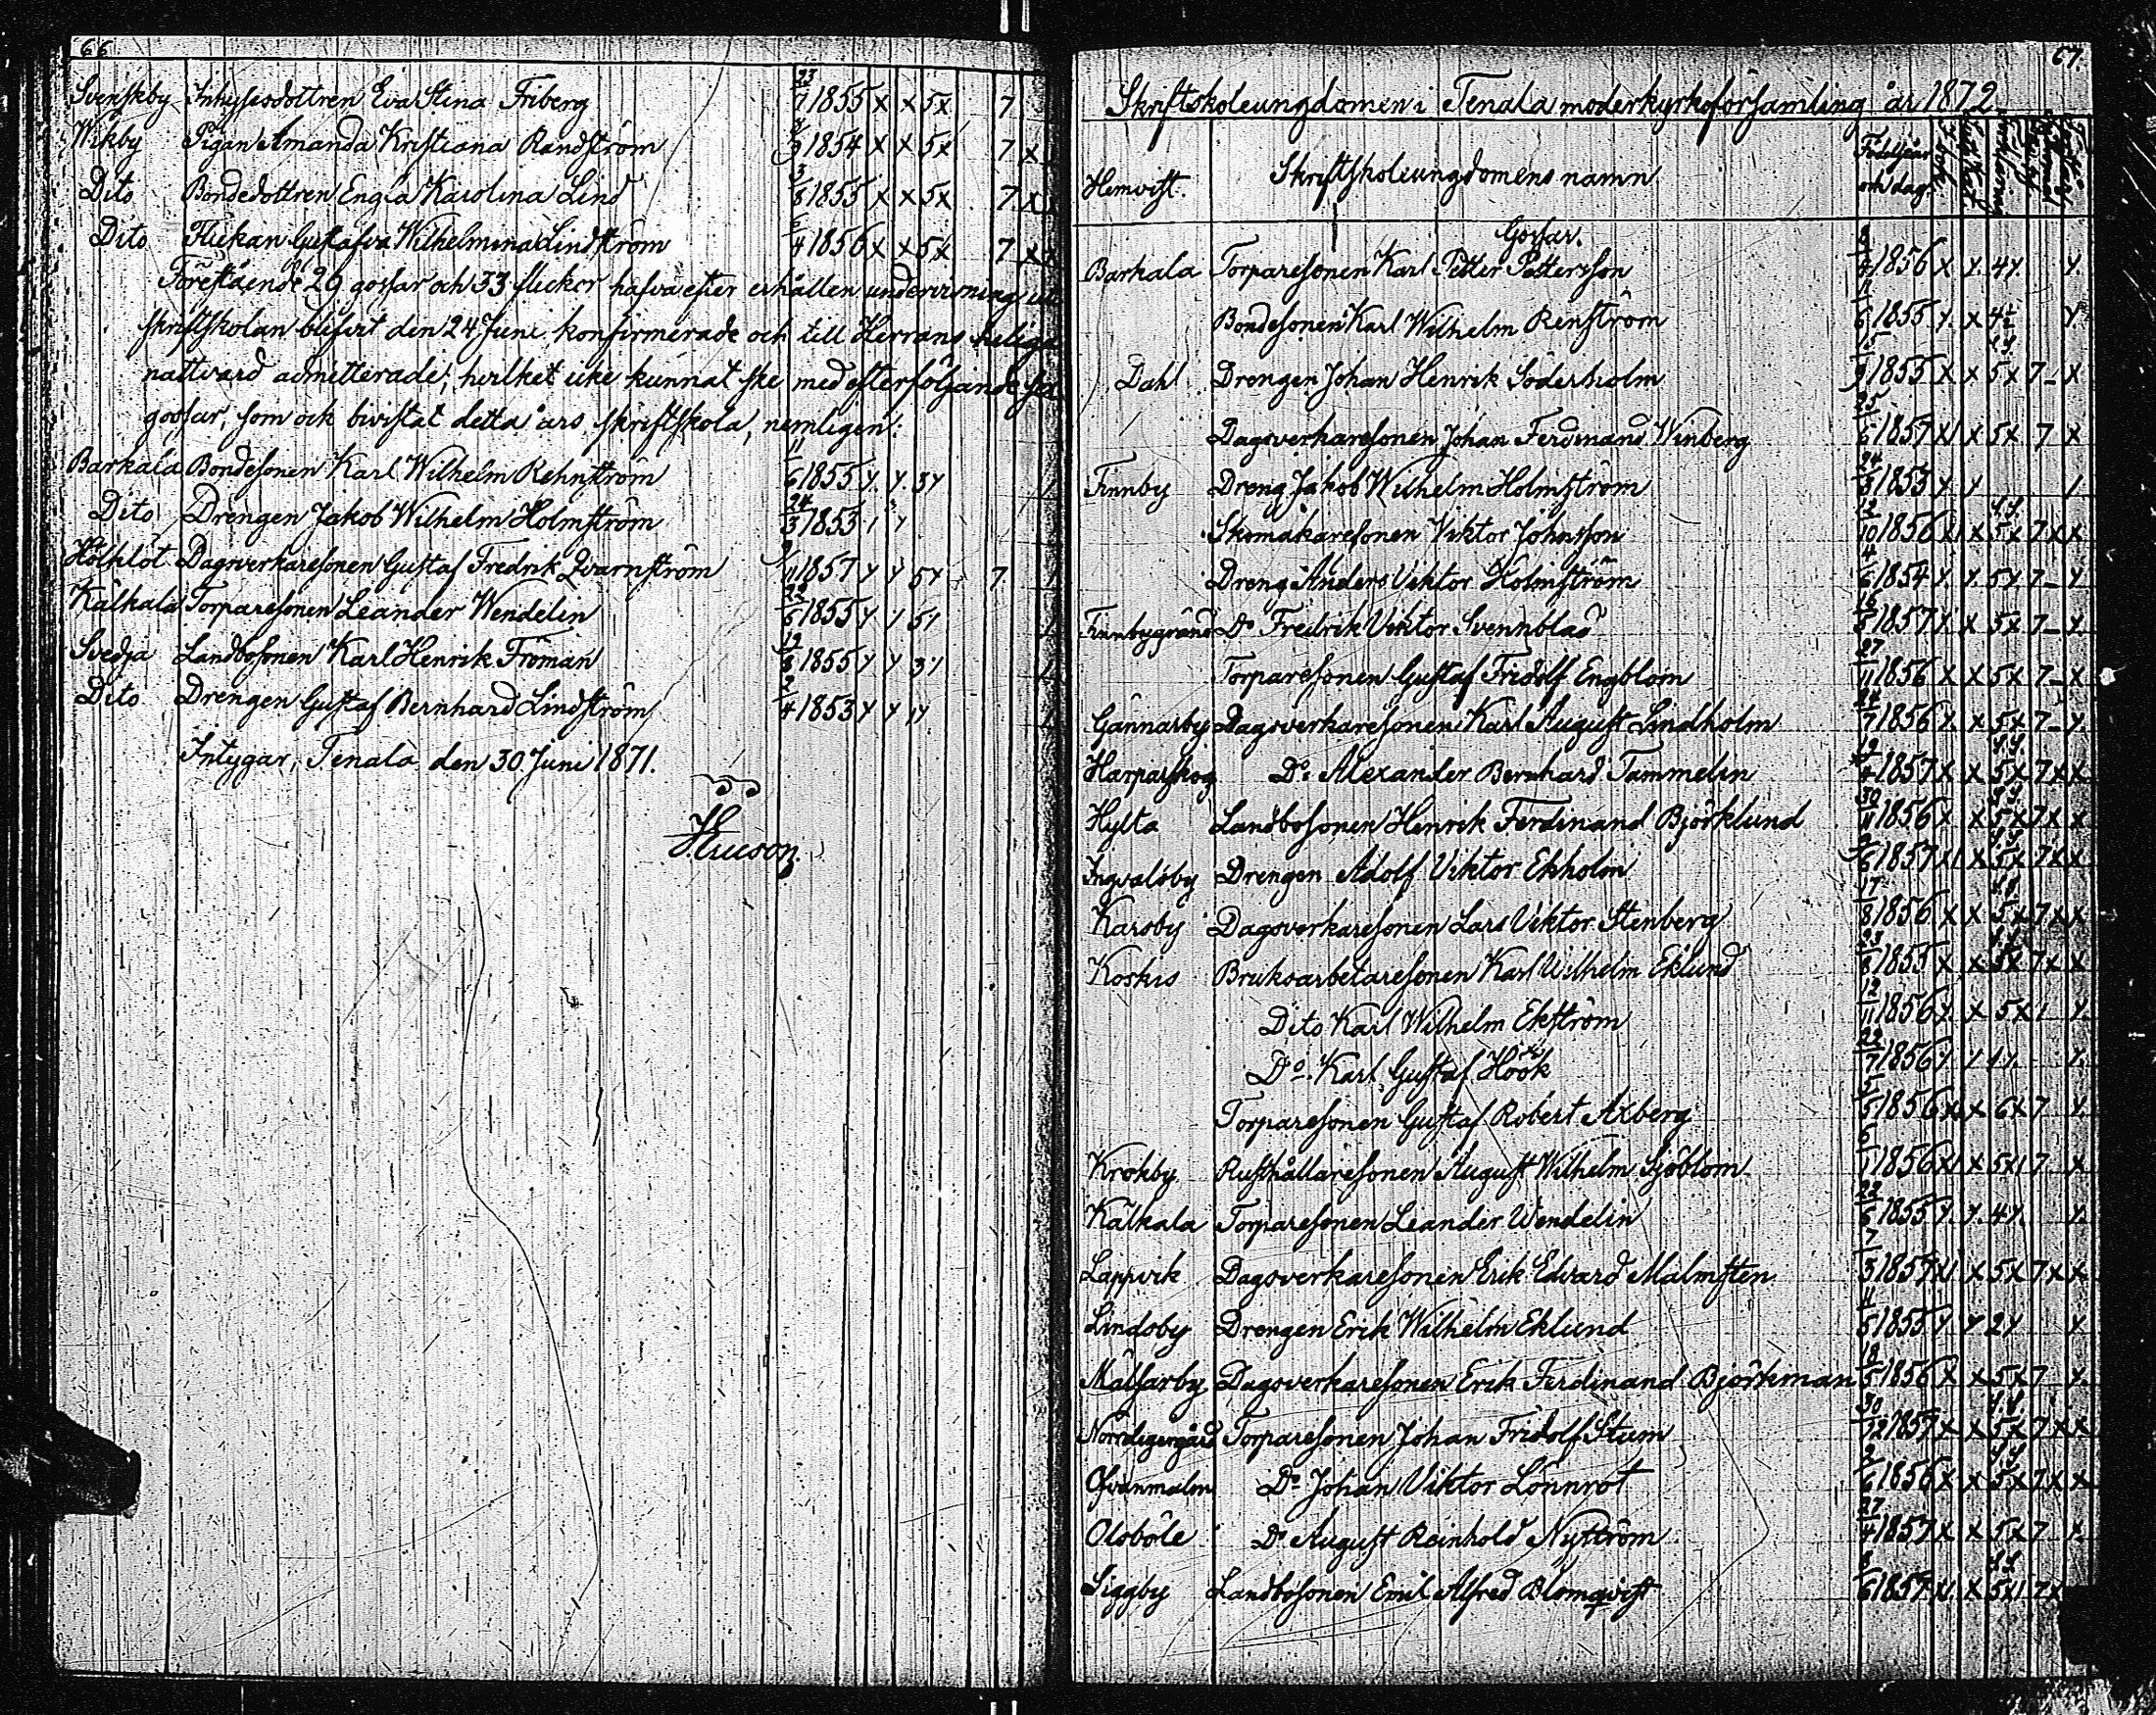 66
Svenskby Inhysesdottren Eva Stina Friberg 23/7 1855 x x 5x 7
Wikby Pigan Amanda Kristiana Randström 1854 x x 5x 7 x
Dito Bondedottren Engla Karolina Lind 3/8 1855 x x 5x 7 x x
Dito Flickan Gustafva Wilhelmina Lindström 1856 x x 5x 7 x x
Förestående 29 gossar och 33 flickor hafva efter erhållen undervisning
skriftskolan blifvit den 24 Juni konfirmerade och till Herrans heliga
nattvard admitterade; hvilket icke kunnat ske med efterföljande
gossar, som ock bivistat detta års skriftskola, nemligen:
Barkala Bondesonen Karl Wilhelm Rehnström 11/6 1855 y. y. 3y
Dito Drengen Jakob Wilhelm Holmström 24/3 1853
Dagsverkaresonen Gustaf Fredrik Qvarnström 1857 y y 5y 7
Kälkala Torparesonen Leander Wendelin 22/6 1855
Svedja Landbosonen Karl Henrik Froman 19/8 1855
Dito Drengen Gustaf Bernhard Lindström 2/4 1853
Intygar, Tenala den 30 Juni 1871.
67.
Skriftskoleungdomen i Tenala moderkyrkoförsamling år 1872
Hemvist. Skriftskoleungdomens namn. Födelseår och dag.
Gossar.
Barkala Torparesonen Karl Petter Pettersson 8/4 1856 x y. 4y. y.
Bondesonen Karl Wilhelm Renström 11/6 1855 y. x 4½
Dahl Drengen Johan Henrik Söderholm 15/9 1855 x x 5x 7 - x
Dagsverkaresonen Johan Ferdinand Winberg 25/6 1857 x x 5x 7 x
Finnby Dreng Jakob Wilhelm Holmström 24/3 1853 y y
Skomakaresonen Viktor Johnsson 12/10 1856 x x 5x 7 x x
Dreng Anders Viktor Holmström 4/6 1854 y. y. 5y. 7 - y.
Finnbygränd Do Fredrik Viktor Svennblad 16/5 1857 y. x 5x 7 - y.
Torparesonen Gustaf Fridolf Engblom 27/11 1856 x x 5x 7 - x
Gännarby Dagsverkaresonen Karl August Lindholm 24/7 1856 y. x 5x 7 - y.
Harparskog Do Alexander Bernhard Tammelin 19/4 1857 x x 5x 7 x x
Hylta Landbosonen Henrik Ferdinand Björklund 30/11 1856 x x 5x 7 x x
Ingvalsby Drengen Adolf Viktor Ekholm 1857 x x 5x 7 x x
Karsby Dagsverkaresonen Lars Viktor Stenberg 17/8 1856 x x 5x 7 x x
Koskis Bruksarbetaresonen Karl Wilhelm Eklund 23/8 1855 x x 5x 7 x x
Dito Karl Wilhelm Ekström 12/11 1856 y. x 5x
Do Karl Gustaf Höök 22/7 1856
Torparesonen Gustaf Robert Axberg 5/5 1856 x x 6x 7 y.
Krokby Rusthållaresonen August Wilhelm Sjöblom. 6/1 1856 x x 5x 7 x
Kälkala Torparesonen Leander Wendelin 22/6 1855 y. y. 4y. y.
Lappvik Dagsverkaresonen Erik Edvard Malmsten 7/3 1857 x x 5x 7 x x
Lindsby Drengen Erik Wilhelm Eklund 4/5 1855 y y 2y y
Mälsarby Dagsverkaresonen Erik Ferdinand Björkman 18/5 1856 x x 5x 7 y.
Torparesonen Johan Fridolf Stum 30/12 1857 x x 5x 7 x x
Do Johan Viktor Lönnrot 2/6 1856 x x 5x 7 x x
Olsböle Do August Reinhold Nyström 27/4 1857 x x 5x 7 x
Siggby Landbosonen Emil Alfred Blomqvist 8/6 1857 x x 5x 7 x